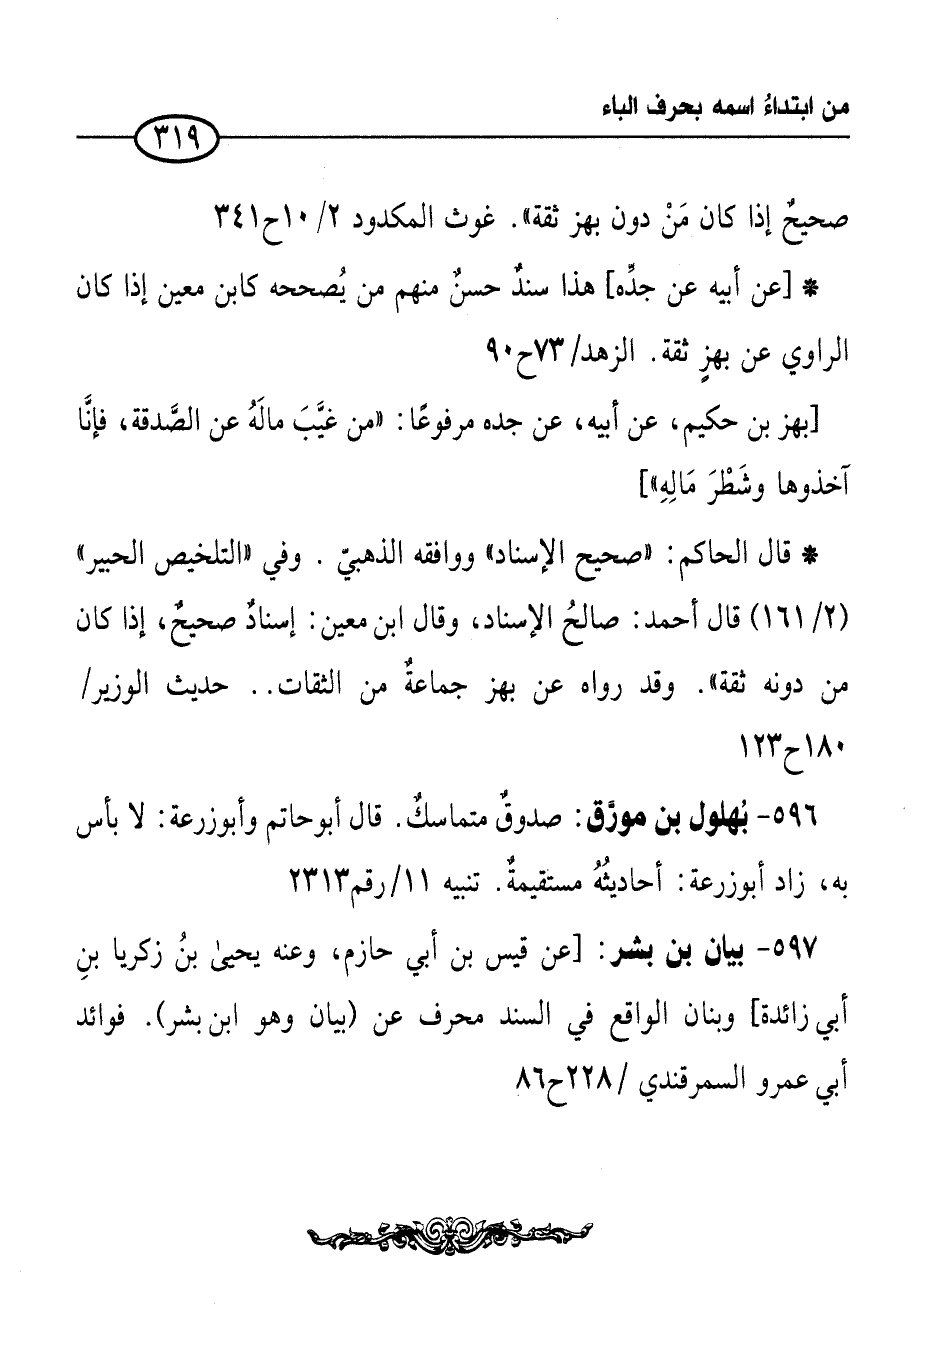 من ابتداءُ اسمه بحرف الباء
٣١٩
صحيحٌ إذا كان مَنْ دون بهز ثقة». غوث المكدود ٢/ ١٠ح٣٤١
* [عن أبيه عن جدِّه] هذا سندٌ حسنٌ منهم من يُصححه كابن معين إذا كان
الراوي عن بهزٍ ثقة. الزهد/ ٧٣ح٩٠
[بهز بن حكيم، عن أبيه، عن جده مرفوعًا: «من غيَّبَ مالَهُ عن الصَّدقة، فإنَّا
آخذوها وشَطْرَ مَالِهِ»]
* قال الحاكم: «صحيح الإسناد» ووافقه الذهبيّ . وفي «التلخيص الحبير»
(٢/ ١٦١) قال أحمد: صالحُ الإسناد، وقال ابن معين: إسنادٌ صحيحٌ، إذا كان
من دونه ثقة». وقد رواه عن بهز جماعةٌ من الثقات.. حديث الوزير/
١٨٠ح١٢٣
٥٩٦- بُهلول بن مورَّق: صدوقٌ متماسكٌ. قال أبوحاتم وأبوزرعة: لا بأس
به، زاد أبوزرعة: أحاديثُهُ مستقيمةٌ. تنبيه ١١/ رقم٢٣١٣
٥٩٧- بيان بن بشر: [عن قيس بن أبي حازم، وعنه يحيىٰ بنُ زكريا بنِ
أبي زائدة] وبنان الواقع في السند محرف عن (بيان وهو ابن بشر). فوائد
أبي عمرو السمرقندي /٢٢٨ح٨٦